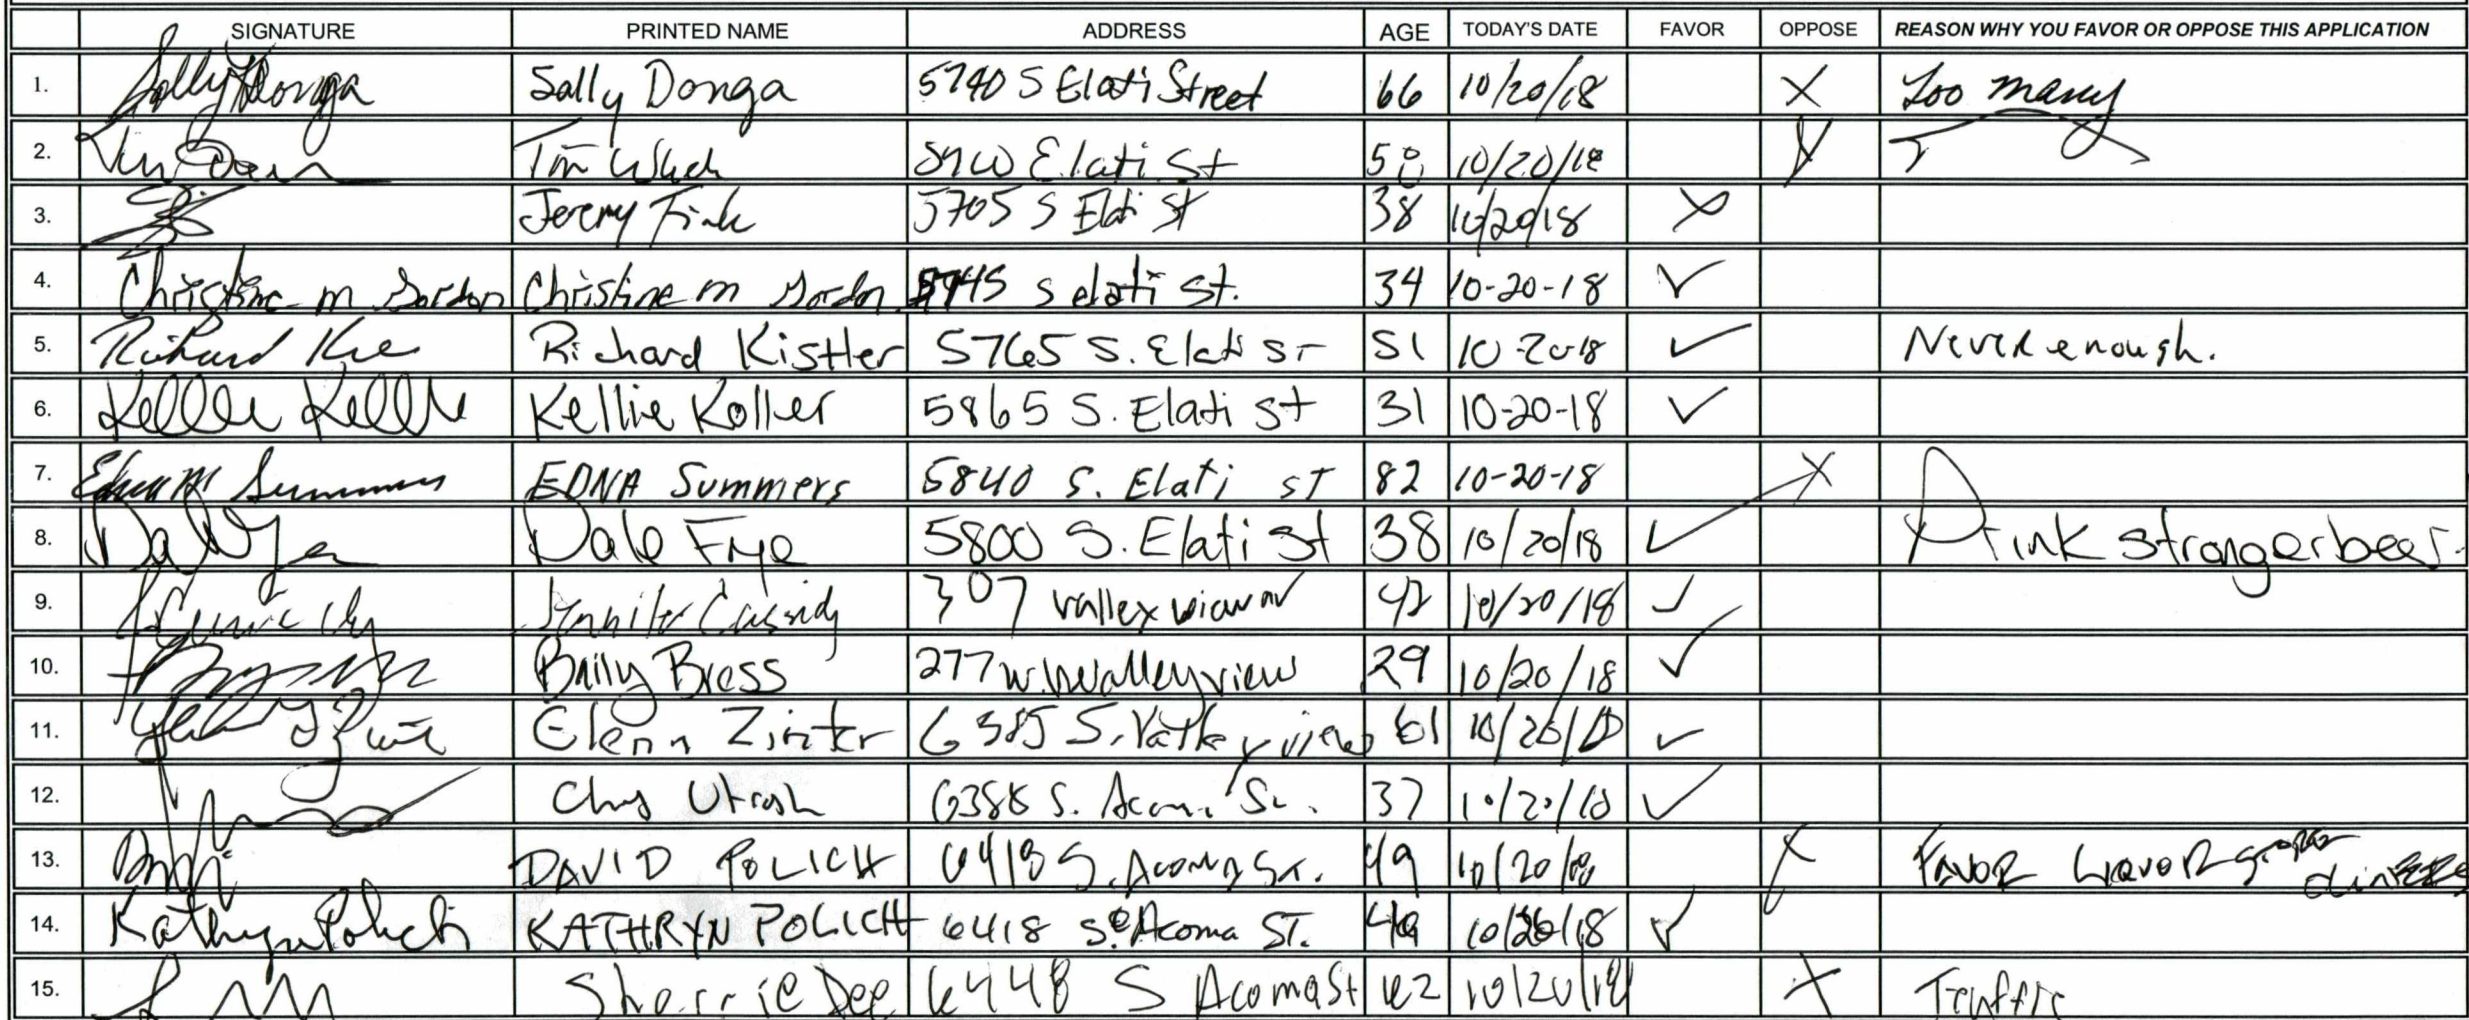 SIGNATURE PRINTED NAME ADDRESS AGE TODAY'S DATE FAVOR OPPOSE REASON WHY YOU FAVOR OR OPPOSE THIS APPLICATION
1. Sally Donga Sally Donga 5740 S Elati Street 66 10/20/18 X Too many
2. Tim Elati St 10/20/18 X
3. Jeremy Fink 5705 S Elati St 38 10/20/18 X
4. Christine m Gordon Christine m Gordon 5745 s elati st. 34 10-20-18 ✓
5. Richard Richard Kistler 5765 S. Elati ST 51 10-20-18 ✓ Never enough.
6. Kellie Koller 5865 S. Elati St 31 10-20-18 ✓
7. Edna M Summers EDNA Summers 5840 S. Elati ST 82 10-20-18 X
8. Dale Frye 5800 S. Elati St 38 10/20/18 ✓ Drink stronger beer.
9. Jennifer Cassidy 307 valley view 42 10/20/18 ✓
10. Baily Bress 277 w. valleyview 29 10/20/18 ✓
11. Glenn Zinter 6385 S. Valley view 61 ✓
12. 6388 S. 37 ✓
13. DAVID POLICH 6418 S. Acoma St. 49 10/20/18 X FAVOR LIQUOR
14. Kathryn Polich KATHRYN POLICH 6418 So Acoma ST. 49 10/20/18 ✓
15. Sherrie Dee 6448 S Acoma St 62 10/20/18 X Traffic